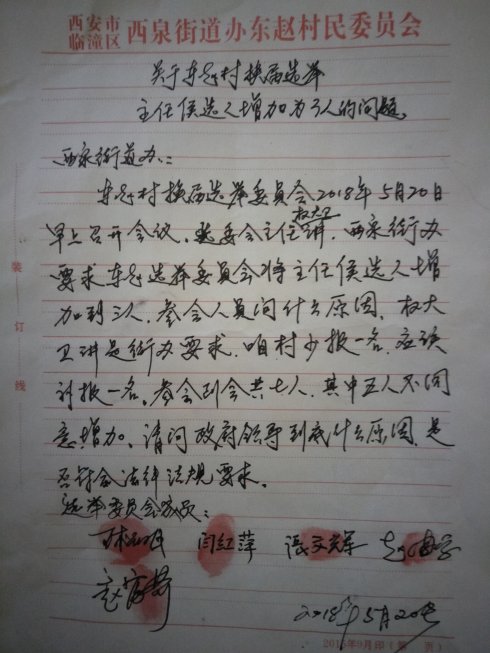 西安市
临潼区 西泉街道办东赵村民委员会
关于东赵村换届选举
主任候选人增加为3人的问题。
西泉街道办：
东赵村换届选举委员会2018年5月20日
早上召开会议。选委会主任权大卫讲，西泉街办
要求东赵选举委员会将主任候选人增
加到三人，参会人员问什么原因，权大
卫讲是街办要求，咱村少报一名，应该
讨报一名。参会到会共七人，其中五人不同
意增加。请问政府领导到底什么原因，是
否符合法律法规要求。
选举委员会成员：
闫红萍
2018年5月20号
装 订 线
2015年9月印（第 页）